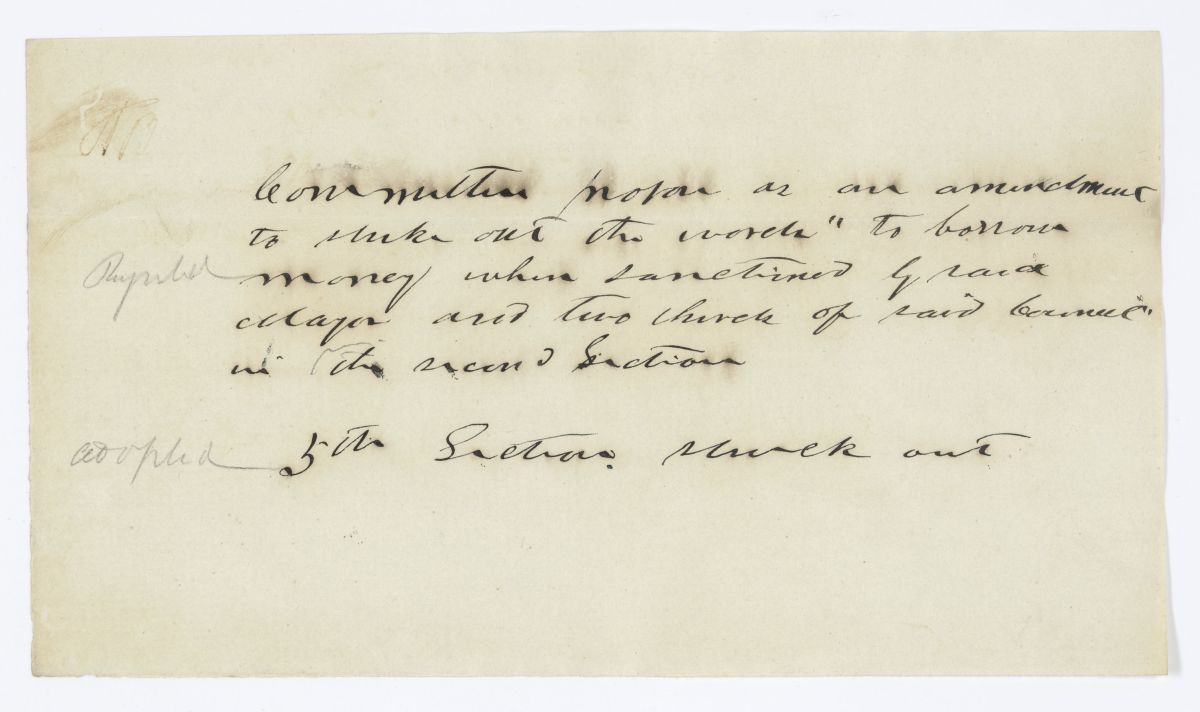 Committee propose as an amendment
to strike out the words "to borrow
Rejected money when sanctioned by said
Mayor and two thirds of said Council"
in the second Section
adopted 5th Section struck out